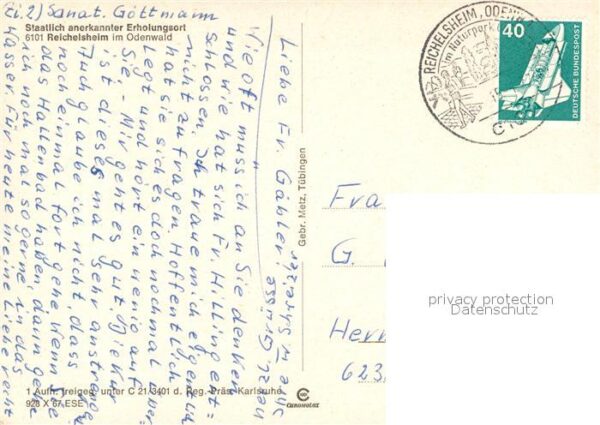 Zi. 2) Sanat. Göttmann
Staatlich anerkannter Erholungsort
6101 Reichelsheim im Odenwald
Liebe Fr. Gähler!
Wie oft muss ich an Sie denken
und wie hat sich Fr. Hilling ent=
schlossen. Ich traue mich eigentlich
nicht zu fragen. Hoffentlich
hat sie sich es doch nochmal über=
legt und hört ein wenig auf
Sie. - Mir geht es gut. Die Kur
ist dieses mal sehr anstrengend
Auch glaube ich nicht, dass ich
noch einmal fort gehe. Wenn Sie
das Hallenbad haben, dann gehe
ich noch mal so gerne in das
Wasser. Für heute meine Liebe recht
herzl. Grüsse
Ihre
Gebr. Metz, Tübingen
1 Aufn. freigeg. unter C 21/3401 d. Reg.-Präs. Karlsruhe
928 X 67 ESE
REICHELSHEIM, ODENW
Im Naturpark
40
DEUTSCHE BUNDESPOST
Fra
G.
Herr
623
privacy protection
Datenschutz